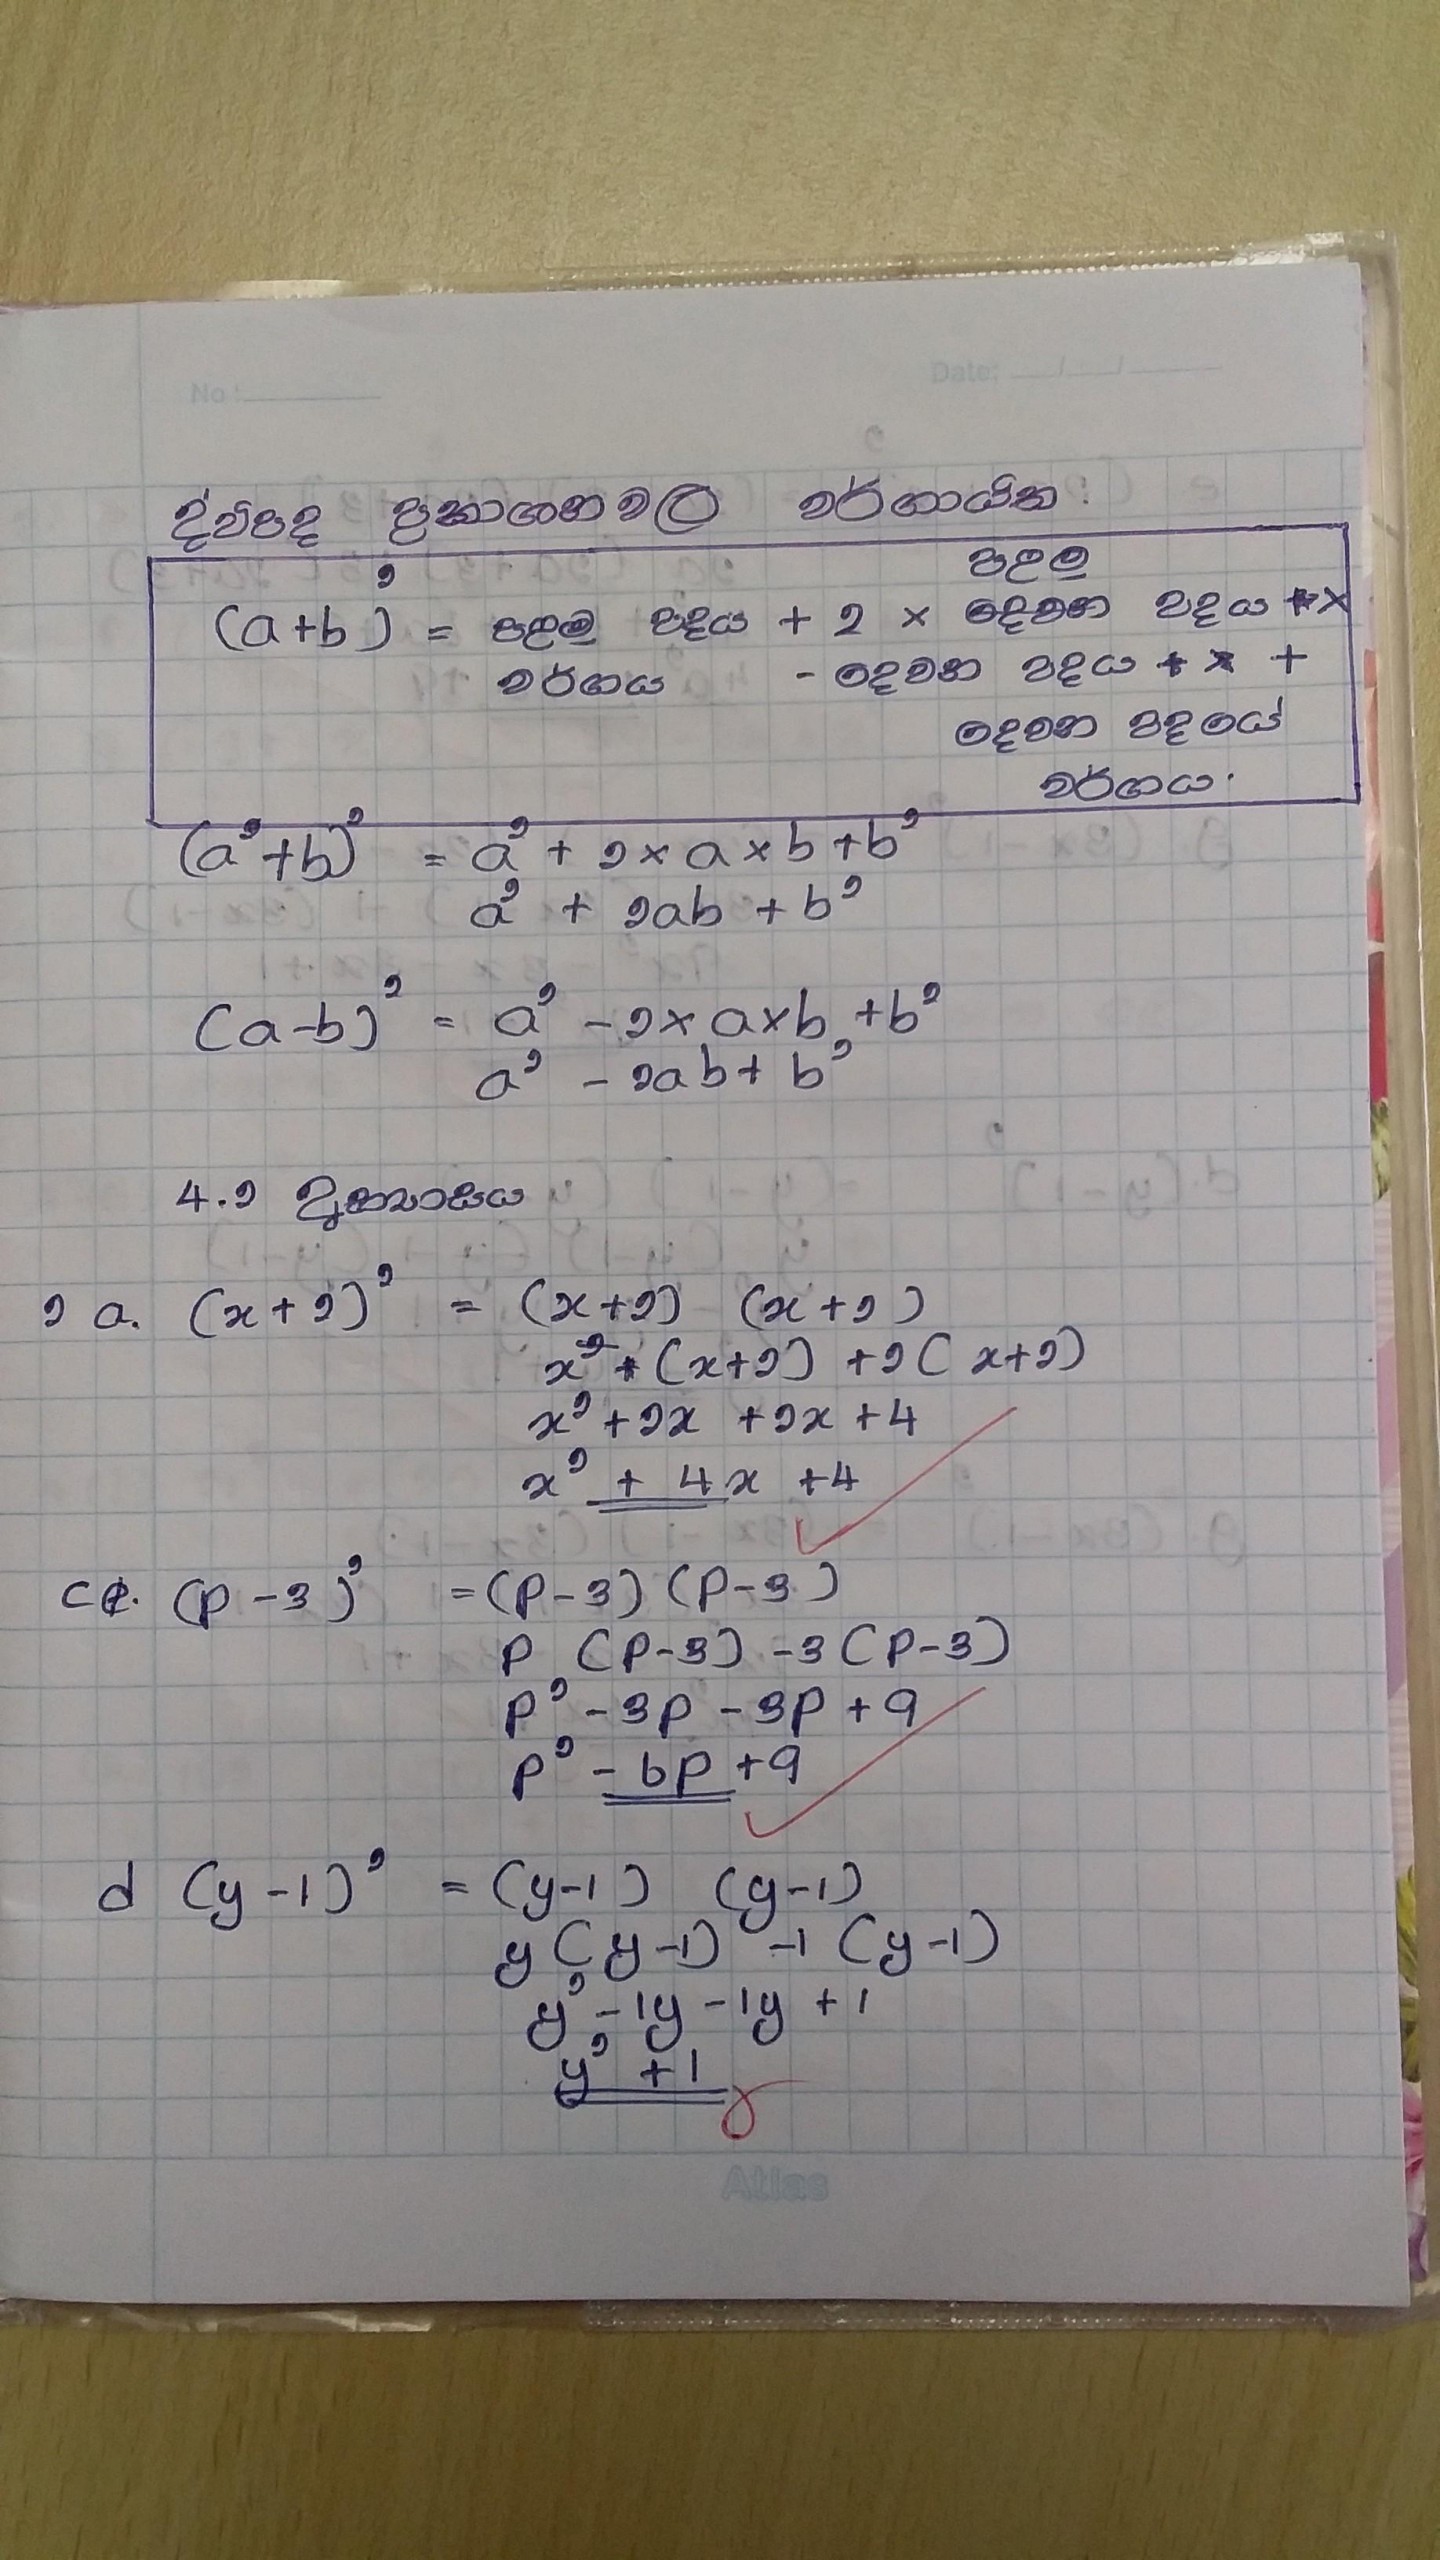 No: Date: / /
ද්විපද ප්‍රකාශනවල වර්ගායිත.
පළමු
(a+b)² = පළමු පදය + 2 × දෙවන පදය + ×
වර්ගය - දෙවන පදය + × +
දෙවන පදයේ
වර්ගය.
(a²+b)² = a² + 2×a×b+b²
a² + 2ab + b²
(a-b)² = a² - 2×a×b +b²
a² - 2ab + b²
4.2 අභ්‍යාසය
2 a. (x+2)² = (x+2) (x+2)
x² + (x+2) +2(x+2)
x² +2x +2x +4
x² + 4x +4
c. (p-3)² = (p-3) (p-3)
p (p-3) -3(p-3)
p² -3p -3p +9
p² -6p +9
d (y-1)² = (y-1) (y-1)
y (y-1) -1 (y-1)
y² -1y -1y +1
y² +1
Atlas